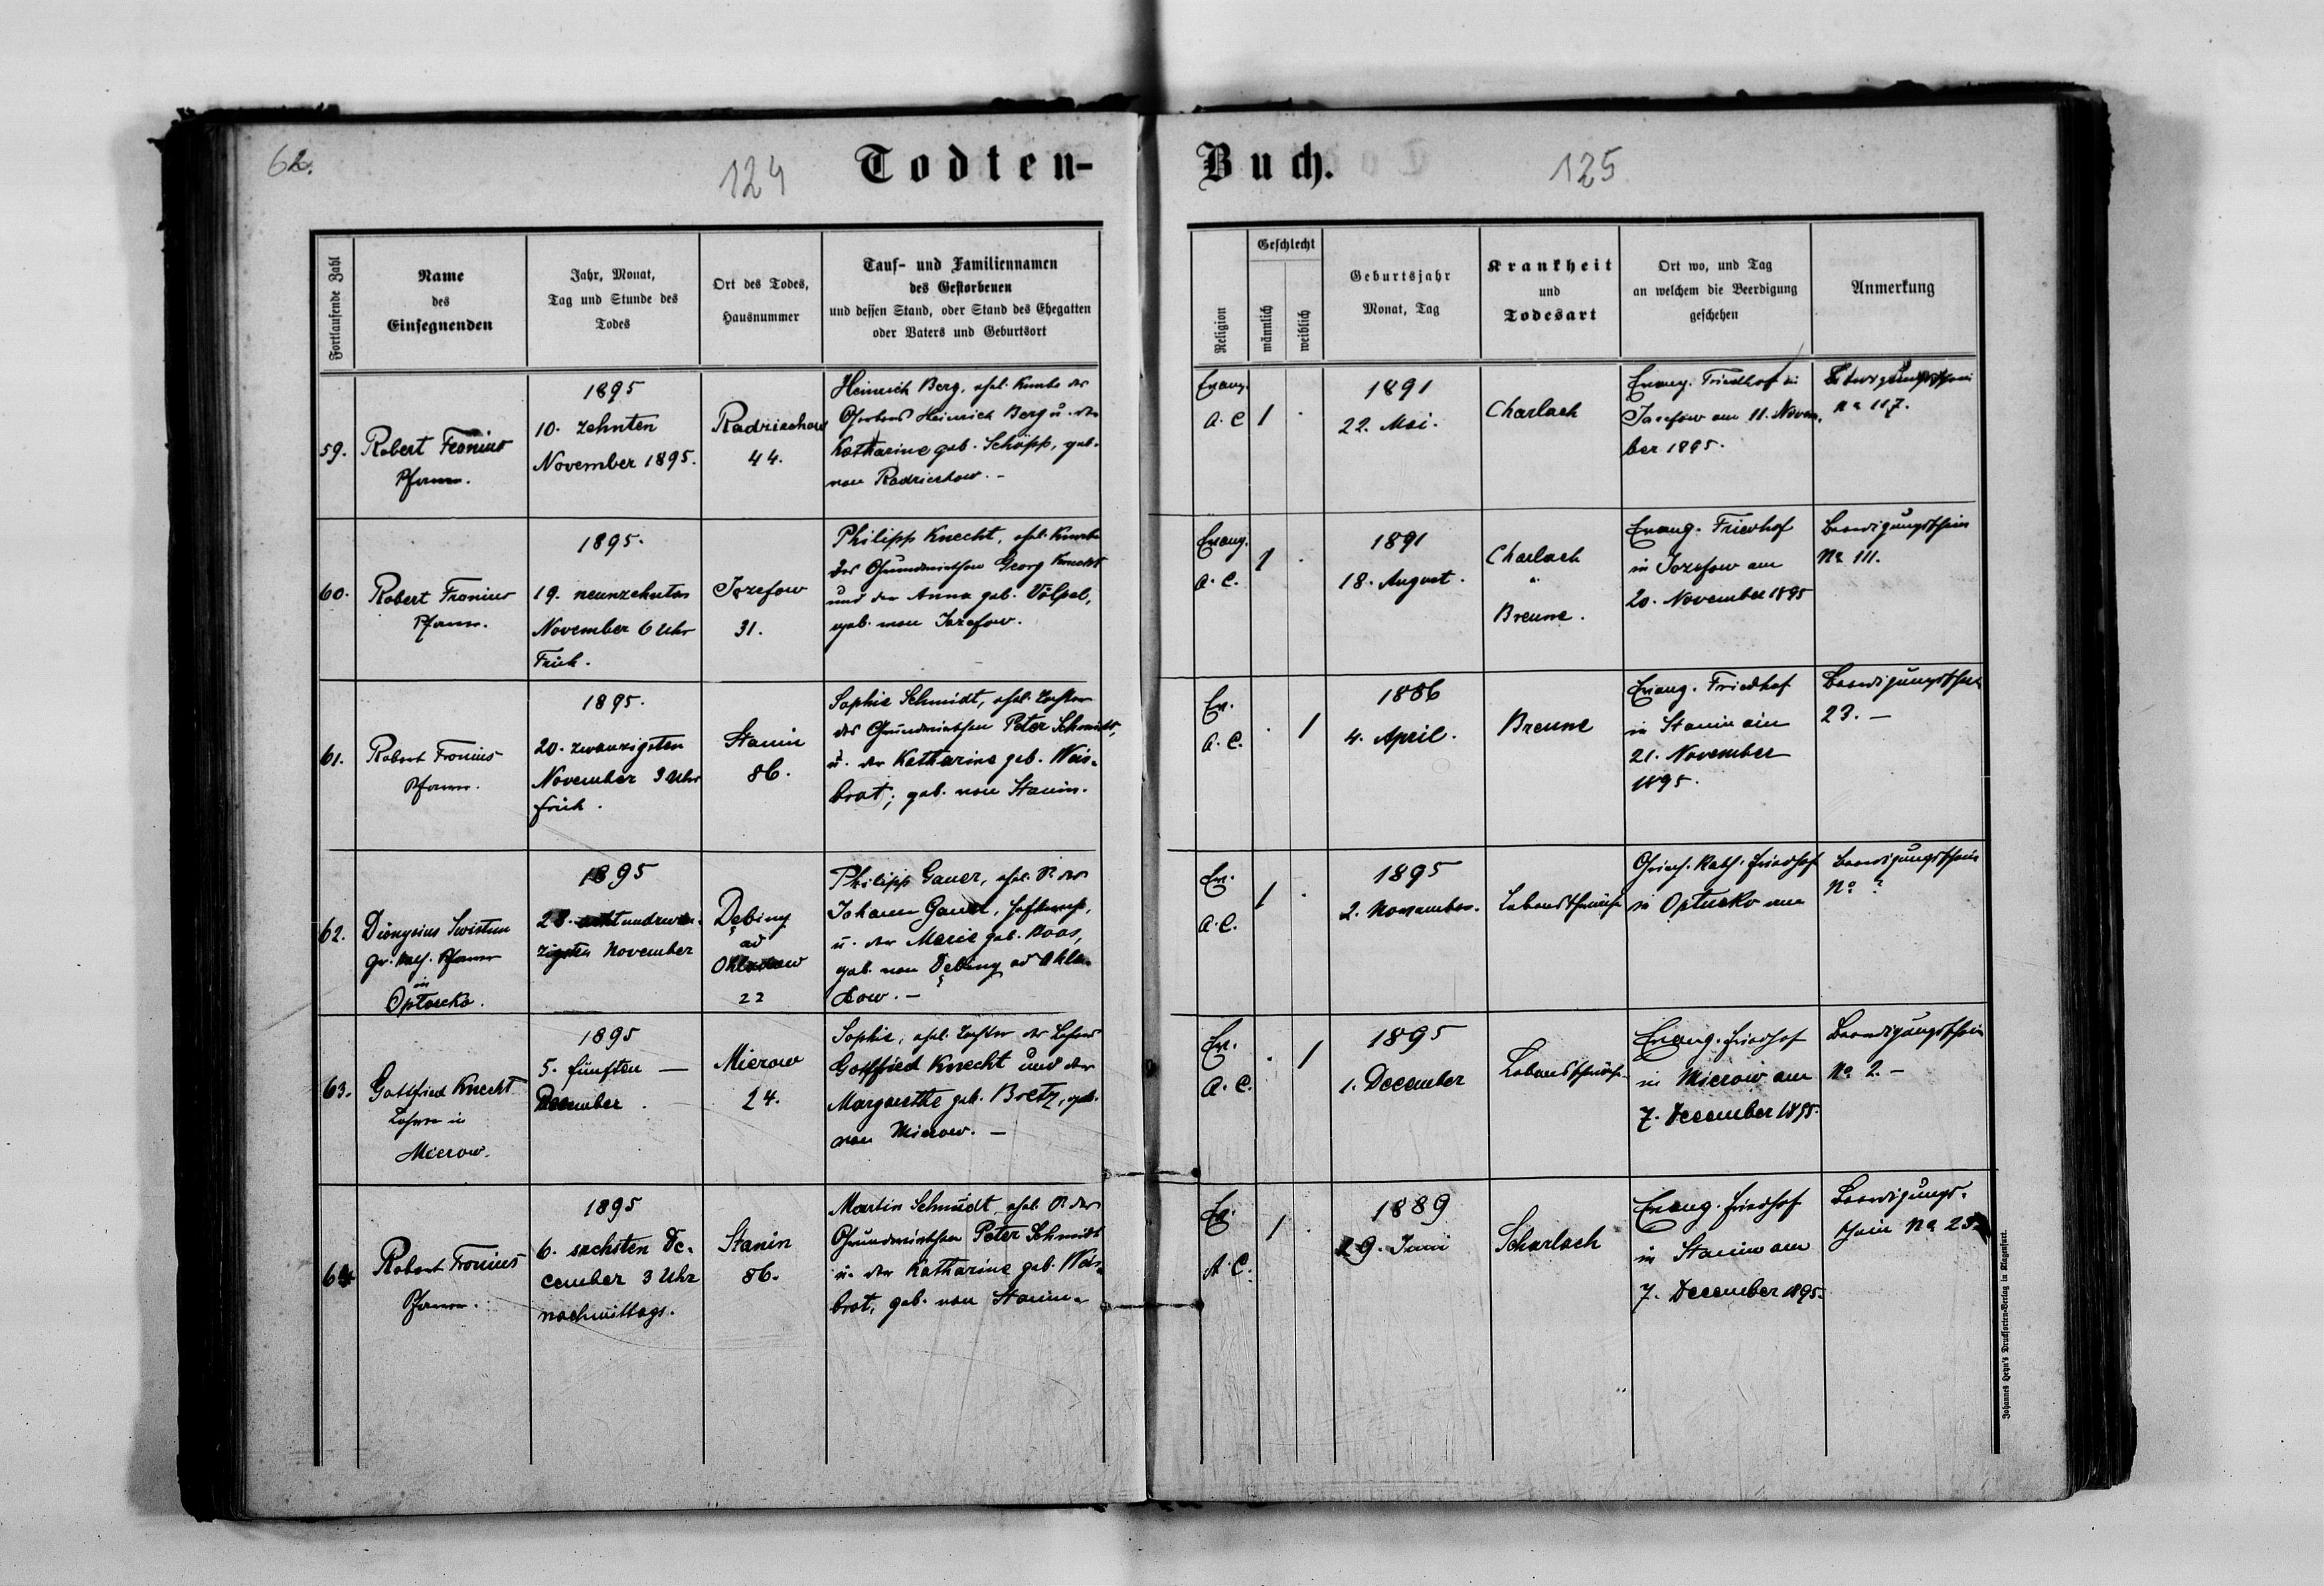 62.
124
Todten-
Buch.
125
Fortlaufende Zahl
Name
des
Einsegnenden
Jahr, Monat,
Tag und Stunde des
Todes
Ort des Todes,
Hausnummer
Tauf- und Familiennamen
des Gestorbenen
und dessen Stand, oder Stand des Ehegatten
oder Vaters und Geburtsort
Religion
Geschlecht
männlich
weiblich
Geburtsjahr
Monat, Tag
Krankheit
und
Todesart
Ort wo, und Tag
an welchem die Beerdigung
geschehen
Anmerkung
59.
Robert Fronius
Pfarrer.
1895
10. zehnten
November 1895.
Radziechow
44.
Heinrich Berg, ehel. Knabe des
Heinrich Berg u. der
Katharine geb. Schöpp, geb.
von Radziechow. -
Evang.
A. C
1
.
1891
22. Mai.
Charlach
Evang. Friedhof in
Josefow am 11. Novem-
ber 1895.
No 117.
60.
Robert Fronius
Pfarrer.
1895.
19. neunzehnten
November 6 Uhr
Früh.
Jozefow
31.
Philipp Knecht, ehel. Knabe
des Grundwirthen Georg Knecht
und der Anna geb. Völpel,
geb. von Jozefow.
Evang.
A. C.
1
.
1891
18. August.
Charlach
u.
Breune.
Evang. Friedhof
in Jozefow am
20. November 1895
Beerdigungsschein
No 111.
61.
Robert Fronius
Pfarrer.
1895.
20. zwanzigsten
November 3 Uhr
früh.
Stanin
86.
Sophie Schmidt, ehel. Tochter
des Grundwirthen Peter Schmidt,
u. der Katharine geb. Weis-
brot; geb. von Stanin.
Ev.
A. C.
.
1
1886
4. April.
Breune
Evang. Friedhof
in Stanin am
21. November
1895.
Beerdigungsschein
23. -
62.
Dionysius
gr. kath. Pfarrer
in
1895
28. achtundzwan-
zigsten November
Dębiny
ad
Ohladow
22
Philipp Gauer, ehel. K. des
Johann Gauer,
u. der Marie geb. Roos,
geb. von Dębiny ad Ohla-
dow. -
Ev.
A. C.
1
.
1895
2. November.
Lebensschwäche
Griech. Kath. Friedhof
in Optucko am
Beerdigungsschein
No ?
63.
Gottfried Knecht
Lehrer in
Mierow.
1895
5. fünften -
December.
Mierow
24.
Sophie, ehel. Tochter des Lehrers
Gottfried Knecht und der
Margarethe geb. Bretz, geb.
von Mierow. -
Ev.
A. C.
.
1
1895
1. December
Lebensschwäche
Evang. Friedhof
in Mierow am
7. December 1895.
Beerdigungsschein
No 2. -
64
Robert Fronius
Pfarrer.
1895
6. sechsten De-
cember 3 Uhr
nachmittags.
Stanin
86.
Martin Schmidt, ehel. K. des
Grundwirthen Peter Schmidt
u. der Katharine geb. Weis-
brot, geb. von Stanin.
Ev.
A. C.
1
.
1889
29. Juni
Scharlach
Evang. Friedhof
in Stanin am
7. December 1895.
Beerdigungs-
schein No
Johannes Heyn's Drucksorten-Verlag in Klagenfurt.